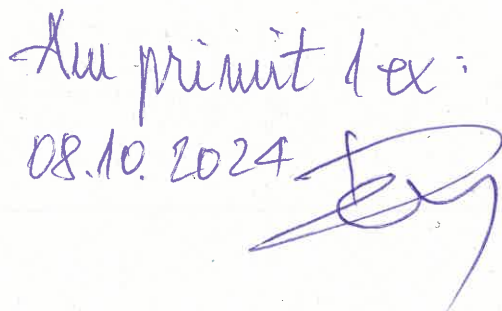 Am primit 1 ex.
08.10.2024